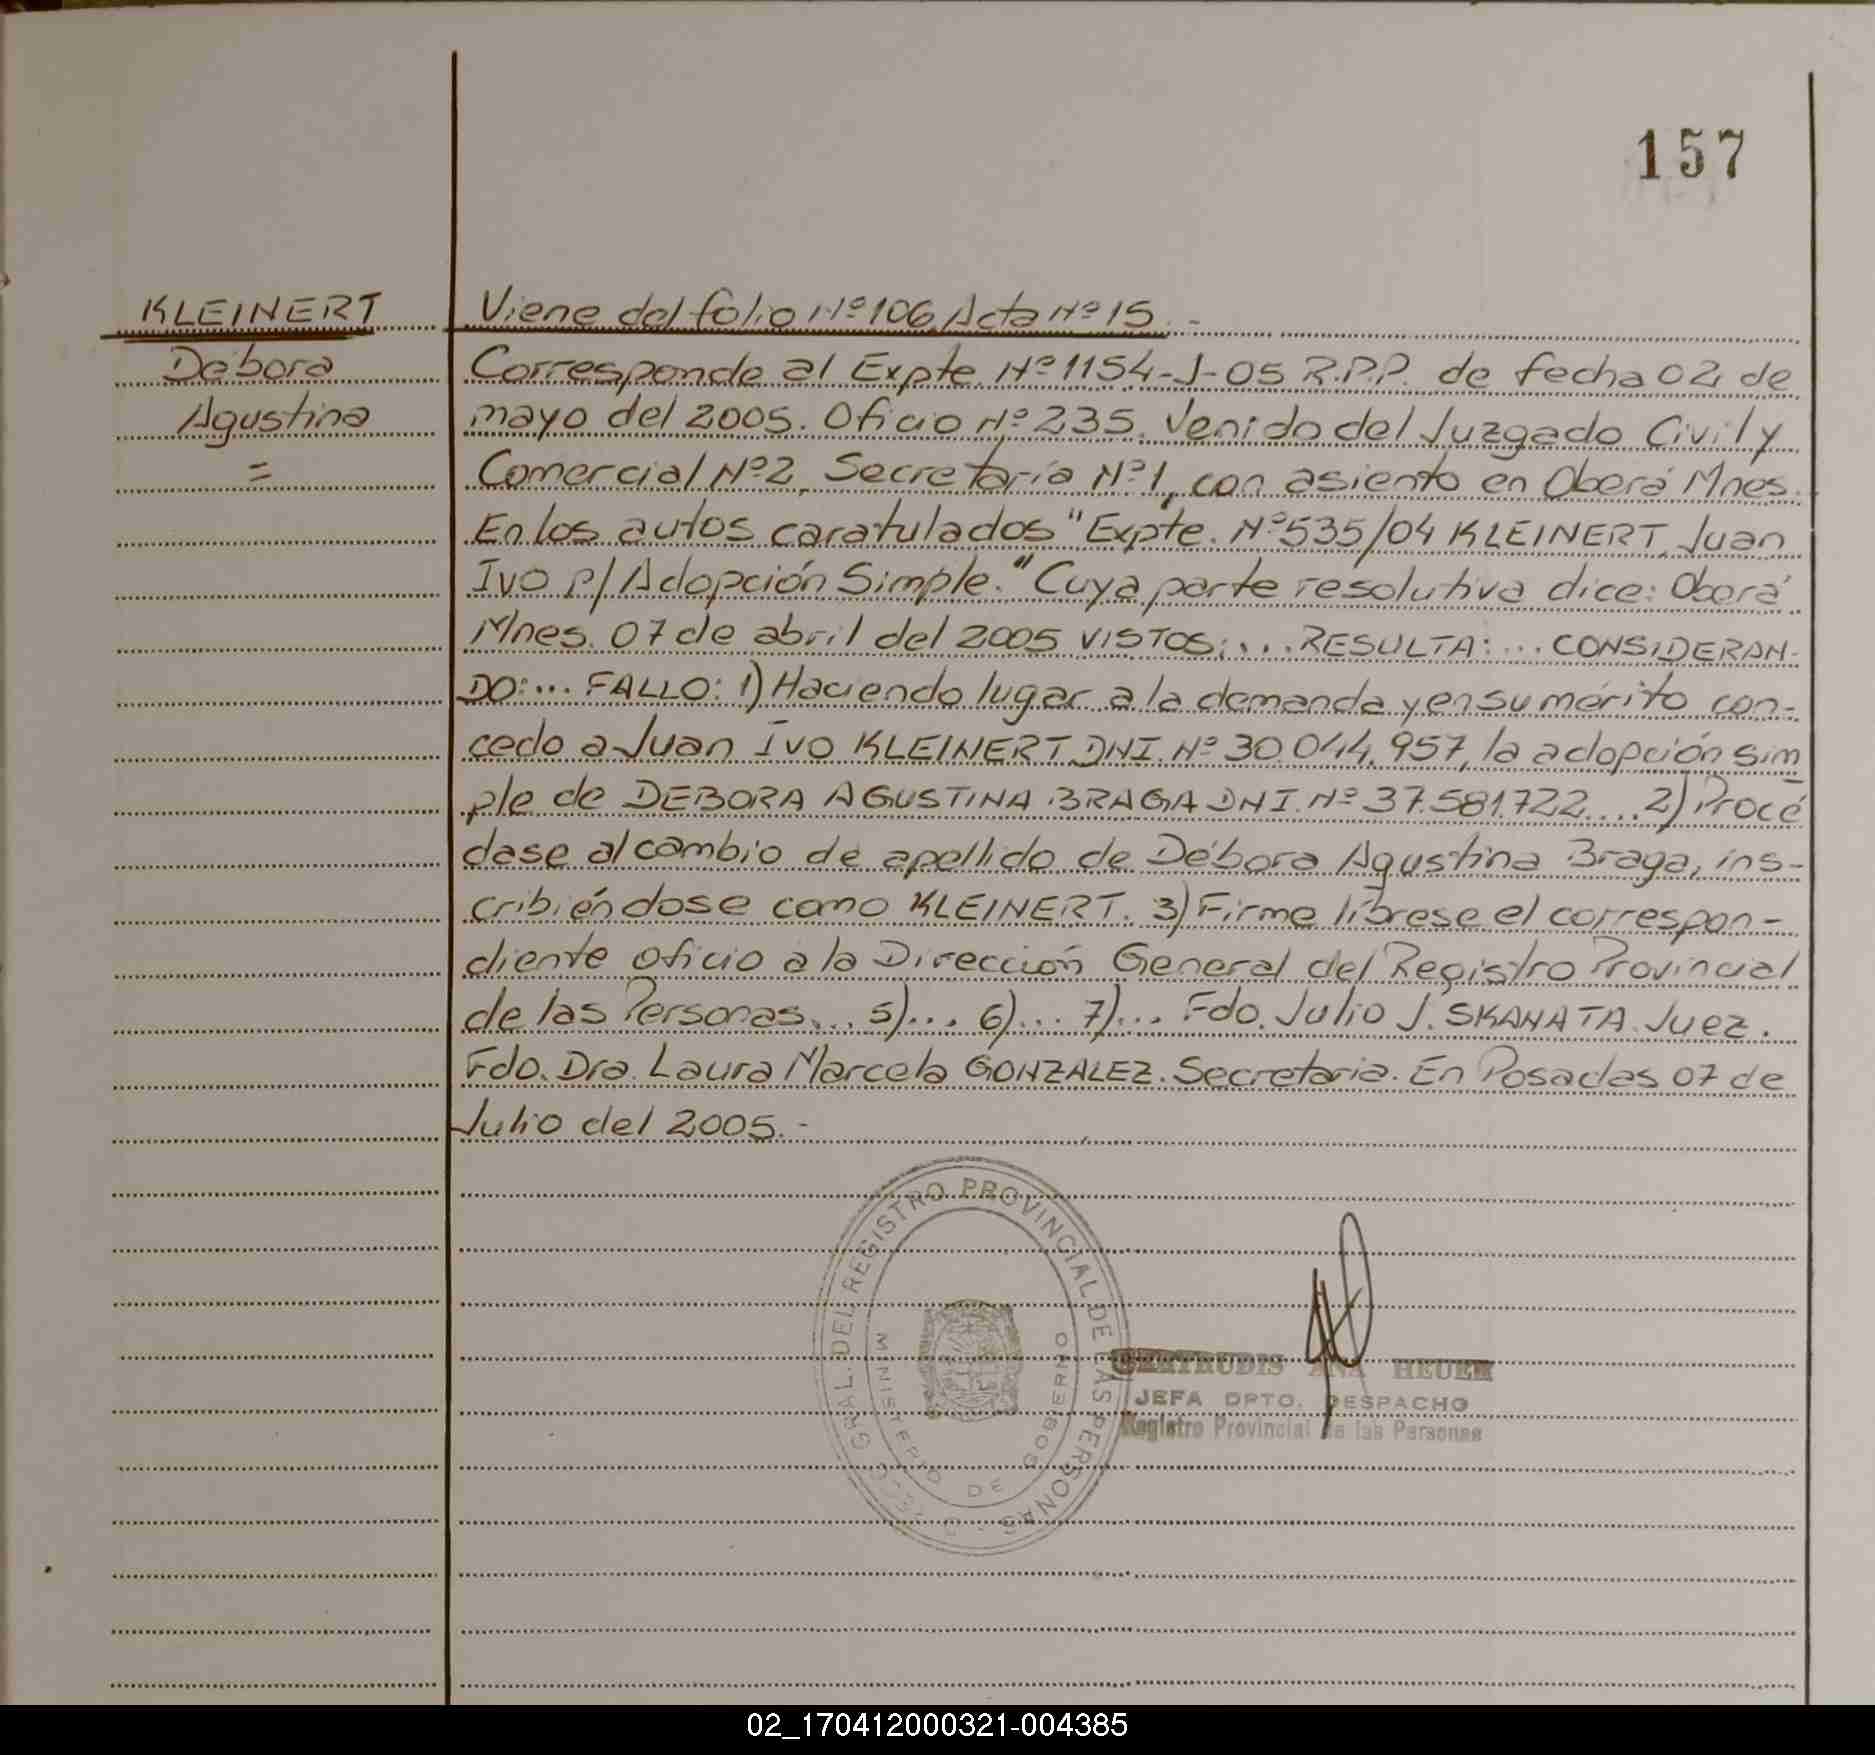 157
KLEINERT
Débora
Agustina
=
Viene del folio Nº 106 Acta Nº 15.-
Corresponde al Expte. Nº 1154-J-05 R.P.P. de fecha 02 de
mayo del 2005. Oficio Nº 235. Venido del Juzgado Civil y
Comercial Nº 2, Secretaría Nº 1, con asiento en Oberá Mnes.
En los autos caratulados "Expte. Nº 535/04 KLEINERT, Juan
Ivo p/ Adopción Simple." Cuya parte resolutiva dice: Oberá
Mnes. 07 de abril del 2005 VISTOS:... RESULTA:... CONSIDERAN-
DO:... FALLO: 1) Haciendo lugar a la demanda y en su mérito con-
cedo a Juan Ivo KLEINERT DNI. Nº 30.044.957, la adopción sim
ple de DEBORA AGUSTINA BRAGA DNI. Nº 37.581.722.... 2) Procé
dase al cambio de apellido de Débora Agustina Braga, ins-
cribiéndose como KLEINERT. 3) Firme líbrese el correspon-
diente oficio a la Dirección General del Registro Provincial
de las Personas... 5)... 6)... 7)... Fdo. Julio J. SKANATA. Juez.
Fdo. Dra. Laura Marcela GONZALEZ. Secretaria. En Posadas 07 de
Julio del 2005.-
GRAL. DEL REGISTRO PROVINCIAL DE LAS PERSONAS
MINISTERIO DE GOBIERNO
GERTRUDIS ANA HEUER
JEFA DPTO. DESPACHO
Registro Provincial de las Personas
02_170412000321-004385